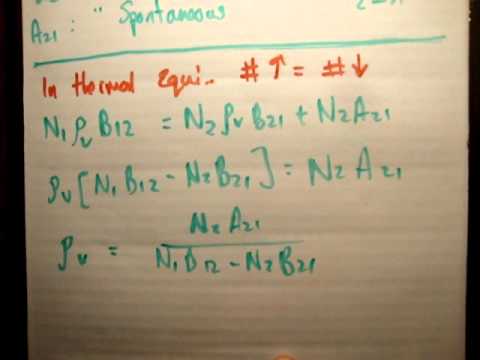 A21 : " Spontaneous
In thermal Equi. # ↑ = # ↓
N1 ρν B12 = N2 ρν B21 + N2 A21
ρν [ N1 B12 - N2 B21 ] = N2 A21
ρν = N2 A21 / N1 B12 - N2 B21